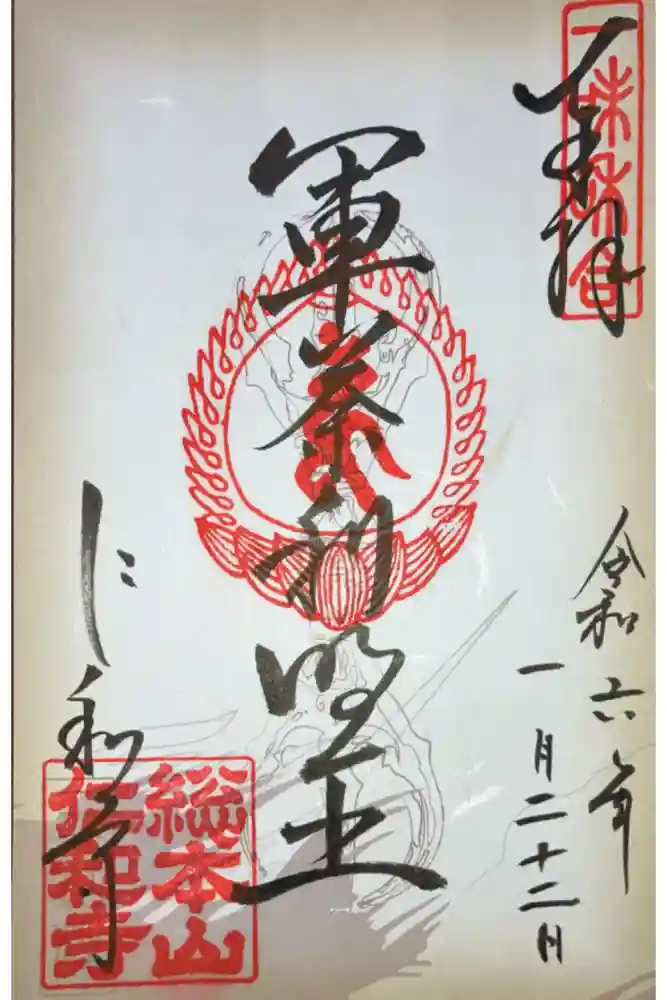 奉拝
一味和合
令和六年
一月二十二日
軍荼利明王
仁和寺
総本山
仁和寺